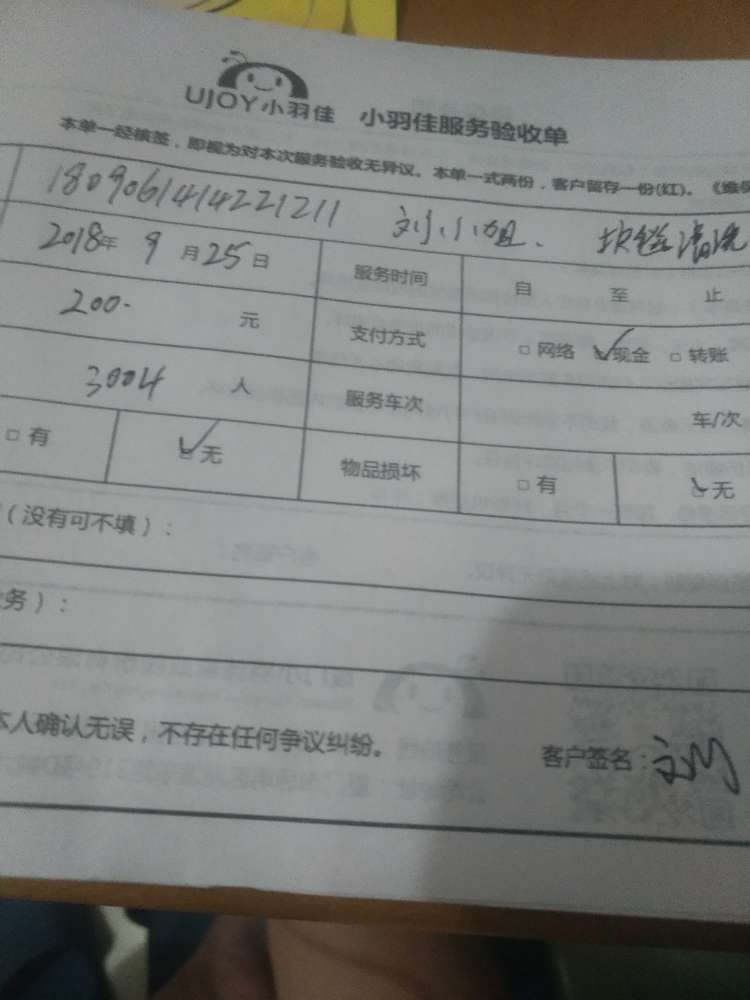 UJOY小羽佳 小羽佳服务验收单
本单一经核签，即视为对本次服务验收无异议。本单一式两份，客户留存一份(红)。《维保
1809061414221211 刘小姐、 地毯清洗
2018年 9 月 25 日 服务时间 自 至 止
200. 元 支付方式 □ 网络 ☑现金 □ 转账
3004 人 服务车次 车/次
□ 有 ☑无 物品损坏 □ 有 ☑无
（没有可不填）：
务）：
本人确认无误，不存在任何争议纠纷。 客户签名：刘